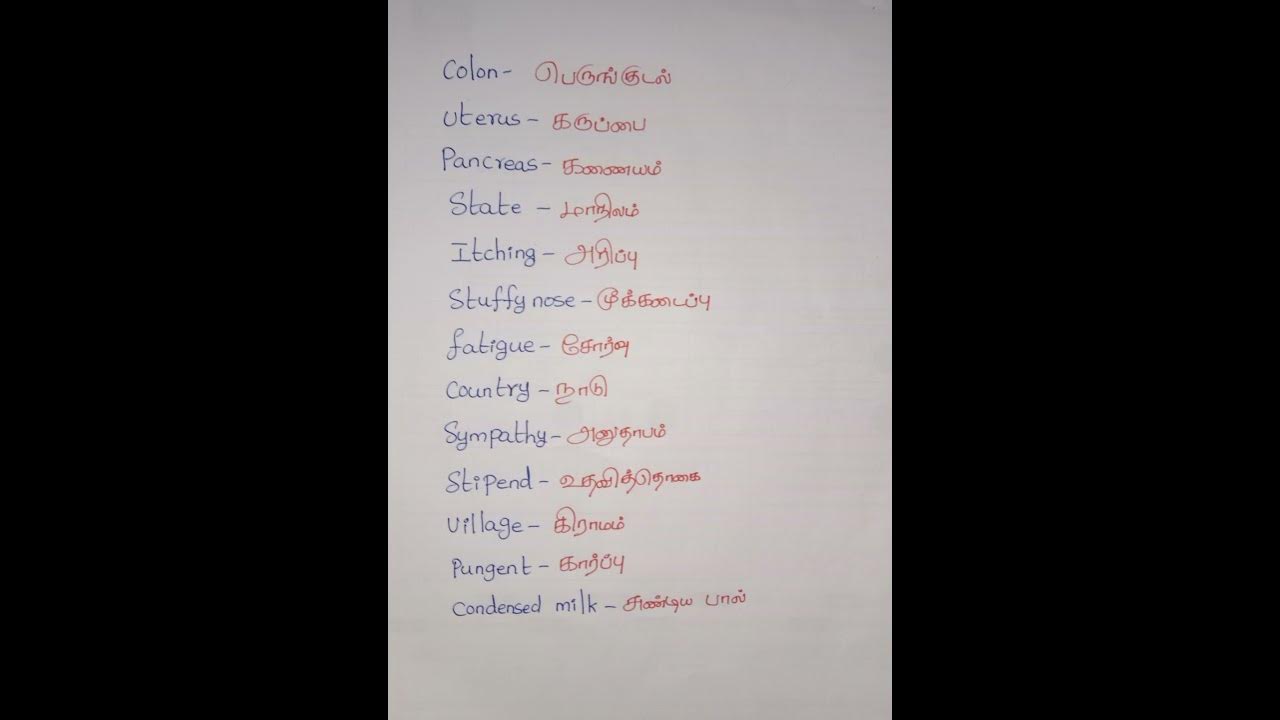 Colon - பெருங்குடல்
Uterus - கருப்பை
Pancreas - கணையம்
State - மாநிலம்
Itching - அரிப்பு
Stuffy nose - மூக்கடைப்பு
fatigue - சோர்வு
Country - நாடு
Sympathy - அனுதாபம்
Stipend - உதவித்தொகை
Village - கிராமம்
Pungent - கார்ப்பு
Condensed milk - சுண்டிய பால்